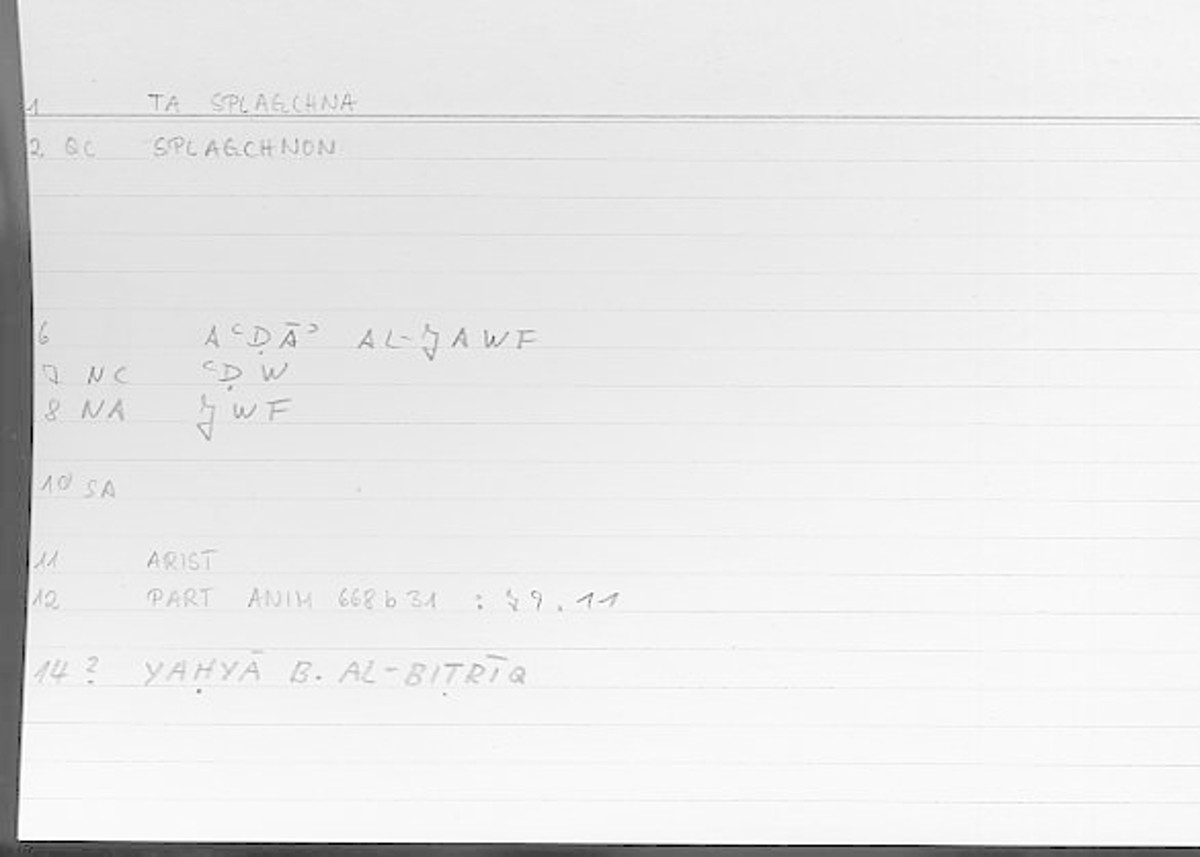 1 TA SPLAGCHNA
2 QC SPLAGCHNON
6 AʿḌĀʾ AL-ǦAWF
7 NC ʿḌW
8 NA ǦWF
10 SA
11 ARIST
12 PART ANIM 668b31 : 79.11
14? YAḤYĀ B. AL-BIṬRĪQ